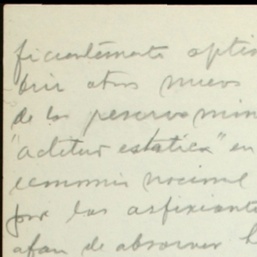 ficientemente optim
brir otros nuevos
de las reservas min
"actitud estatica" en
economia nacional
por las asfixiante
afan de absorver h